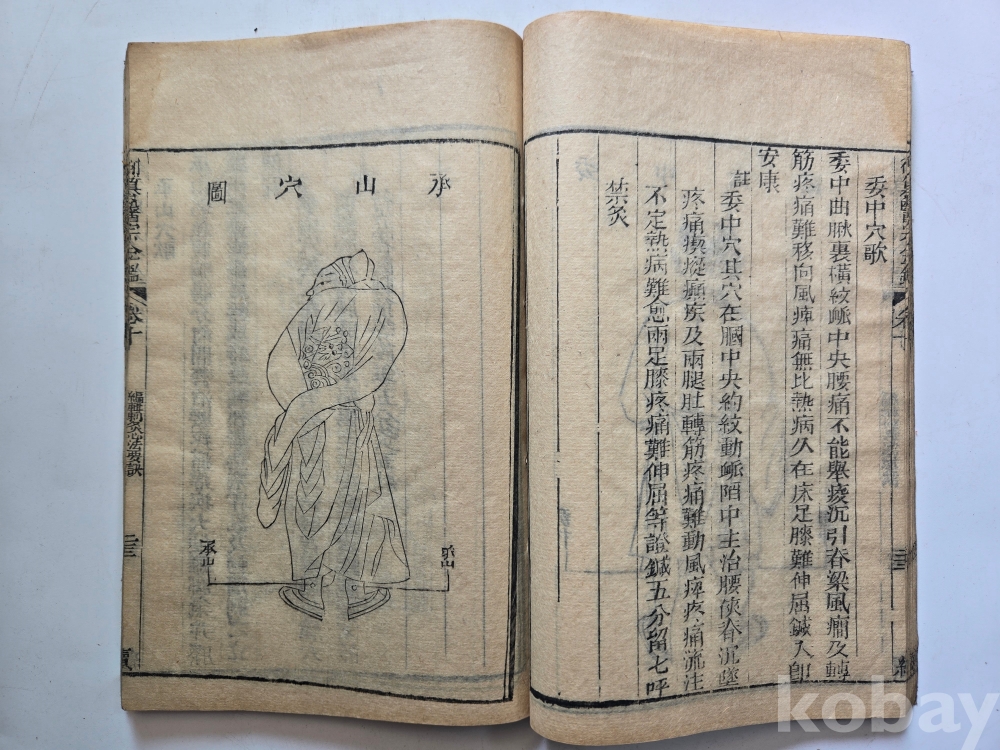 委中穴歌
委中曲䐐裏橫紋脈中央腰痛不能舉痠沉引脊梁風癎及轉
筋疼痛難移向風痺痛無比熱病久在床足膝難伸屈鍼入卽
安康
註委中穴其穴在膕中央約紋動脈陷中主治腰俠脊沉墜
疼痛瘈瘲癲疾及兩腿肚轉筋疼痛難動風痺疼痛流注
不定熱病難愈兩足膝疼痛難伸屈等證鍼五分留七呼
禁灸
承山穴圖
承山
承山
御纂醫宗金鑑
卷十
編輯刺灸心法要訣
三
kobay